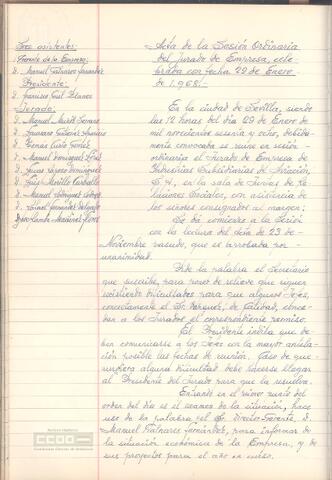 Sres. asistentes:
Gerente de la Empresa:
D. Manuel Palnares Fernández
Presidente:
D. Francisco Gil Blanco
Jurado:
D. Manuel Martí
D. Manuel
D. Lucas
D. Luis Morillo Carballo
D. Manuel
D. Rafael Fernández Delgado
Acta de la Sesión Ordinaria
del Jurado de Empresa, cele-
brada con fecha 29 de Enero
de 1.968:-
En la ciudad de Sevilla, siendo
las 12 horas del día 29 de Enero de
mil novecientos sesenta y ocho, debida-
mente convocada se reune en sesión
ordinaria el Jurado de Empresa de
Industrias Subsidiarias de Aviación,
S.A., en la sala de Juntas de Re-
laciones Sociales, con asistencia de
los señores consignados al margen:
Se dió comienzo a la Sesión
con la lectura del Acta de 23 de
Noviembre pasado, que es aprobada por
unanimidad.
Pide la palabra el Secretario
que suscribe, para poner de relieve que siguen
existiendo dificultades para que algunos Jefes,
concretamente el Sr. Márquez, de Calidad, conce-
dan a los Jurados el correspondiente permiso.
El Presidente indica que de-
ben comunicarse a los Jefes con la mayor antela-
ción posible las fechas de reunión. Caso de que
surgiera alguna dificultad debe hacerse llegar
al Presidente del Jurado para que la resuelva.
Entrando en el primer punto del
orden del día es el examen de la situación, hace
uso de la palabra el Sr. Director-Gerente, D.
Manuel Palnares Fernández, para informar de
la situación económica de la Empresa, y de
sus proyectos para el año en curso.
Archivo Histórico
CCOO
Comisiones Obreras de Andalucía